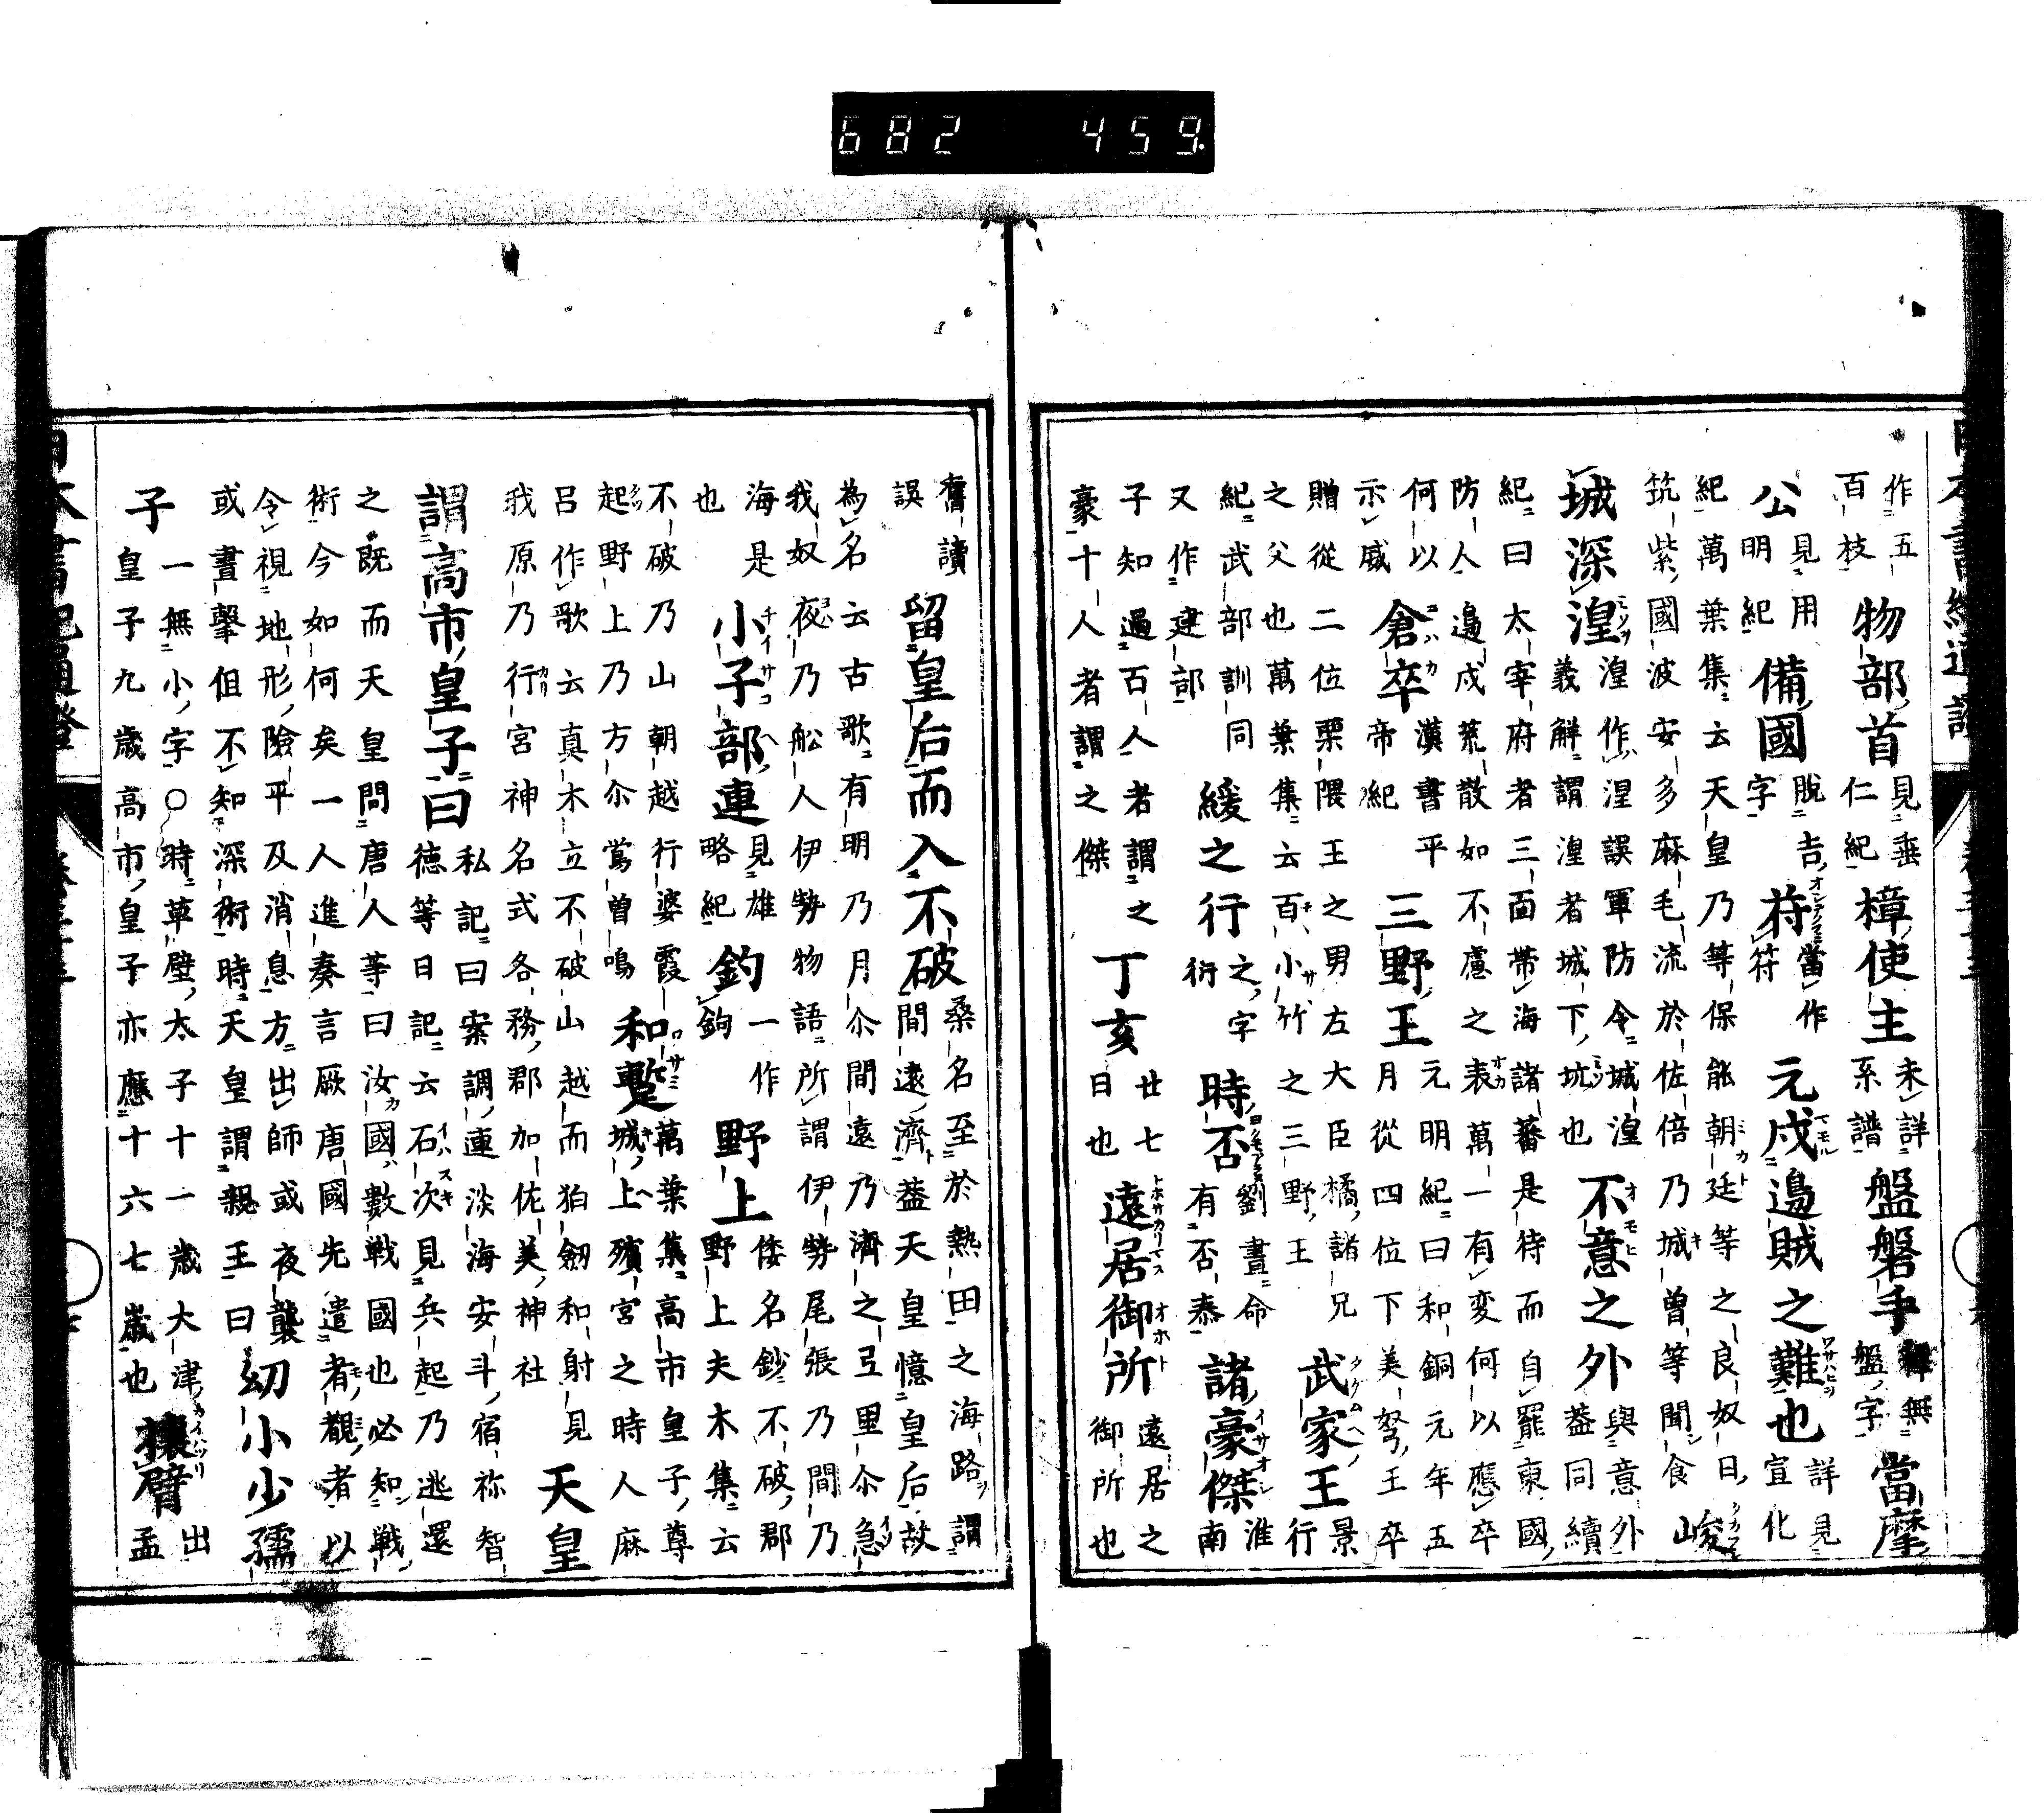 作五百枝 物部首 見垂仁紀 樟使主 未詳系譜 盤磐手 釋無盤字 當摩
公 見用明紀 備國 脫吉字 苻 當作符 元戍邊賊之難也 詳見宣化
紀萬葉集云天皇乃等保能朝廷等之良奴日筑紫國波安多麻毛流於佐倍乃城曽等聞食 峻
城深湟 湟作湼誤軍防令城湟義解謂湟者城下坑也 不意之外 與意外蓋同續
紀曰太宰府者三面帶海諸蕃是待而自罷東國防人邊戍荒散如不慮之表萬一有変何以應卒
何以示威 倉卒 漢書平帝紀 三野王 元明紀曰和銅元年五月從四位下美努王卒
贈從二位栗隈王之男左大臣橘諸兄之父也萬葉集云百小竹之三野王 武家王 景行
紀武部訓同又作建部 緩之行 之字衍 時否 劉晝命有否泰 諸豪傑 淮南
子知過百人者謂之豪十人者謂之傑 丁亥 廿七日也 遠居御所 遠居之御所也
舊讀誤 留皇后而入不破 桑名至於熱田之海路謂間遠濟蓋天皇憶皇后故
為名云古歌有明乃月尒間遠乃濟之弖里尒急我奴夜乃舩人伊勢物語所謂伊勢尾張乃間乃
海是也 小子部連 見雄略紀 釣 一作鉤 野上 倭名鈔不破郡野上夫木集云
不破乃山朝越行婆霞起野上乃方尒鴬曽鳴 和蹔 萬葉集高市皇子尊城上殯宮之時人麻
呂作歌云真木立不破山越而狛劔和射見我原乃行宮神名式各務郡加佐美神社 天皇
謂高市皇子曰 私記曰案調連淡海安斗宿祢智徳等日記云石次見兵起乃逃還
之既而天皇問唐人等曰汝國數戦國也必知戦術今如何矣一人進奏言厥唐國先遣者覩者以
令視地形險平及消息方出師或夜襲或晝擊但不知深術時天皇謂親王曰 幼小少孺
子 一無小字○時草壁太子十一歳大津皇子九歳高市皇子亦應十六七歳也 攘臂 出孟
682 459.